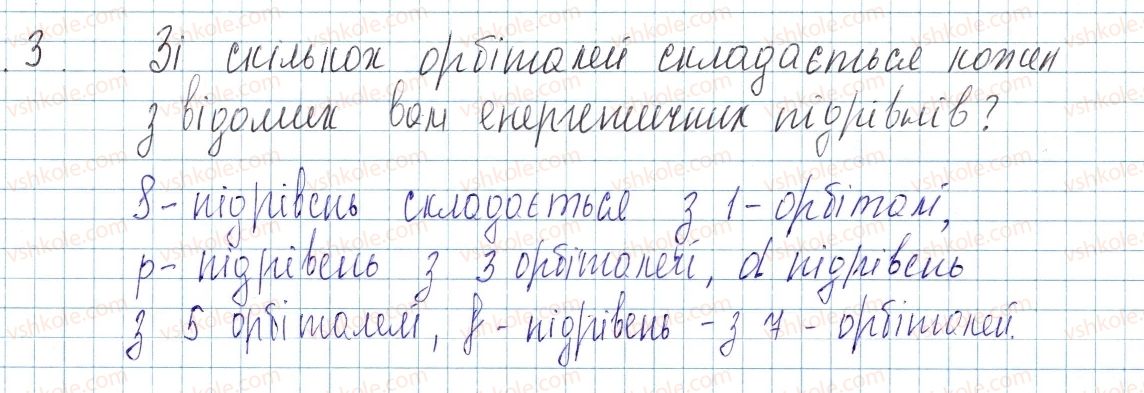 3. Зі скількох орбіталей складається кожен
з відомих вам енергетичних підрівнів?
S-підрівень складається з 1-орбіталі,
р-підрівень з 3 орбіталей, d підрівень
з 5 орбіталей, f-підрівень - з 7-орбіталей.